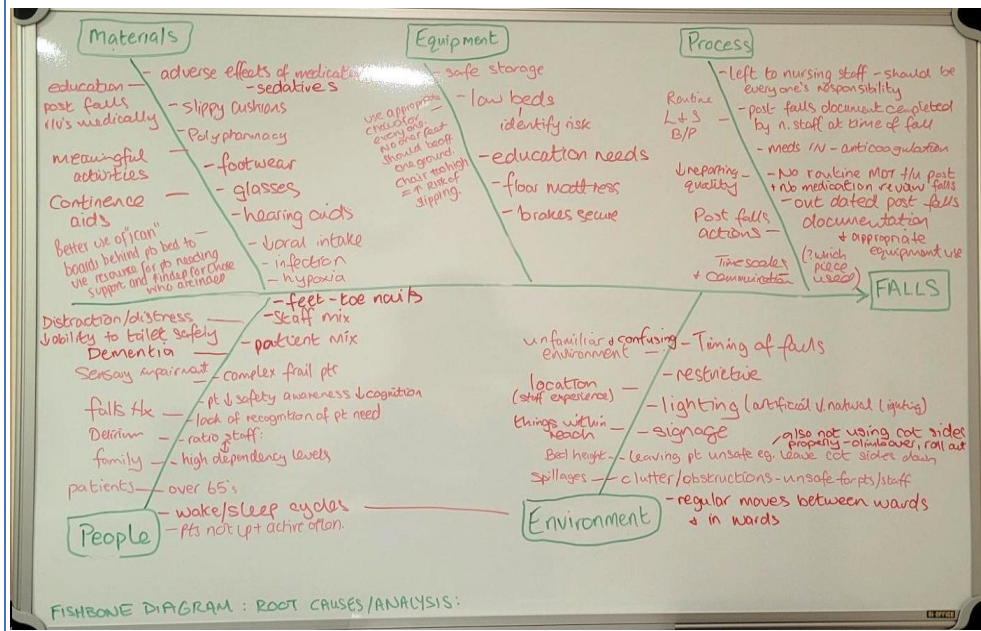 Materials
education —
post falls
r/v's medically
meaningful
activities
Continence —
aids
Better use of "ican" —
boards behind pt bed to
use resource for pts needing
support and
who are indep
- adverse effects of medicates
- sedatives
- slippy cushions
- Polypharmacy
- footwear
- glasses
- hearing aids
- ↓oral intake
- infection
- hypoxia
Equipment
- safe storage
- low beds
↓
identify risk
- education needs
- floor mattress
- brakes secure
use appropriate —
chair for
everyone.
No other feet
should be off
the ground.
Chair too high
= ↑ risk of
slipping.
Process
- left to nursing staff - should be
everyone's responsibility
- post falls document completed
by n. staff at time of fall
- meds r/v - anticoagulation
- No routine MDT f/u post
+ no medication review falls
- out dated post falls
documentation
+ appropriate
equipment use
(? which
piece
used)
Routine
L+S —
B/P
↓reporting —
quality
Post falls
actions —
Timescales
+ communication
FALLS
Distraction/distress —
↓ability to toilet safely
Dementia —
Sensory impairment —
falls Hx —
Delirium —
family —
patients —
- feet - toe nails
- staff mix
- patient mix
- complex frail pts
- pt ↓safety awareness ↓cognition
- lack of recognition of pt need
- ratio staff:
↕
- high dependency levels
- over 65's
- wake/sleep cycles
- pts not up + active often.
People
unfamiliar + confusing
environment —
location —
(staff experience)
things within
reach —
Bed height -
Spillages —
- Timing of falls
- restrictive
- lighting (artificial v. natural lighting)
- signage
also not using cot sides
properly - climb over, roll out
- leaving pt unsafe eg. leave cot sides down
- clutter/obstructions - unsafe for pts/staff
- regular moves between wards
+ in wards
Environment
FISHBONE DIAGRAM : ROOT CAUSES/ANALYSIS:
BI-OFFICE